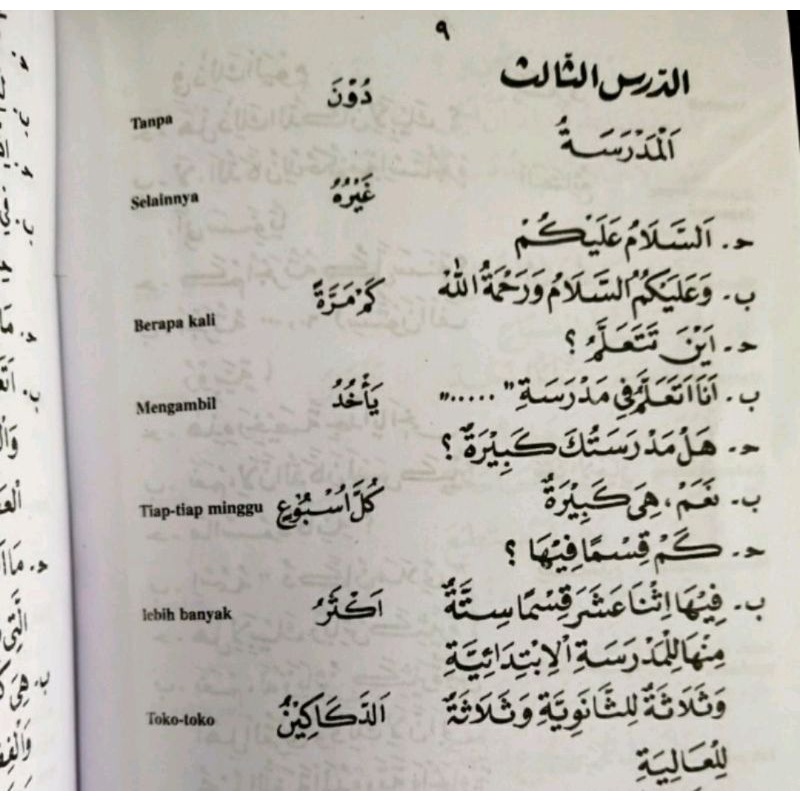 ٩
الدرس الثالث
اَلْمَدْرَسَةُ
حـ. اَلسَّلَامُ عَلَيْكُمْ
ب. وَعَلَيْكُمُ السَّلَامُ وَرَحْمَةُ اللهِ
حـ. اَيْنَ تَتَعَلَّمُ ؟
ب. اَنَا اَتَعَلَّمُ فِي مَدْرَسَةِ "....."
حـ. هَلْ مَدْرَسَتُكَ كَبِيْرَةٌ ؟
ب. نَعَمْ، هِيَ كَبِيْرَةٌ
حـ. كَمْ قِسْمًا فِيْهَا ؟
ب. فِيْهَا اِثْنَا عَشَرَ قِسْمًا سِتَّةٌ
مِنْهَا لِلْمَدْرَسَةِ الْاِبْتِدَائِيَّةِ
وَثَلَاثَةٌ لِلثَّانَوِيَّةِ وَثَلَاثَةٌ
لِلْعَالِيَةِ
دُوْنَ Tanpa
غَيْرُهُ Selainnya
كَمْ مَرَّةً Berapa kali
يَأْخُدُ Mengambil
كُلَّ اُسْبُوْعٍ Tiap-tiap minggu
اَكْثَرُ lebih banyak
اَلدَّكَاكِيْنُ Toko-toko